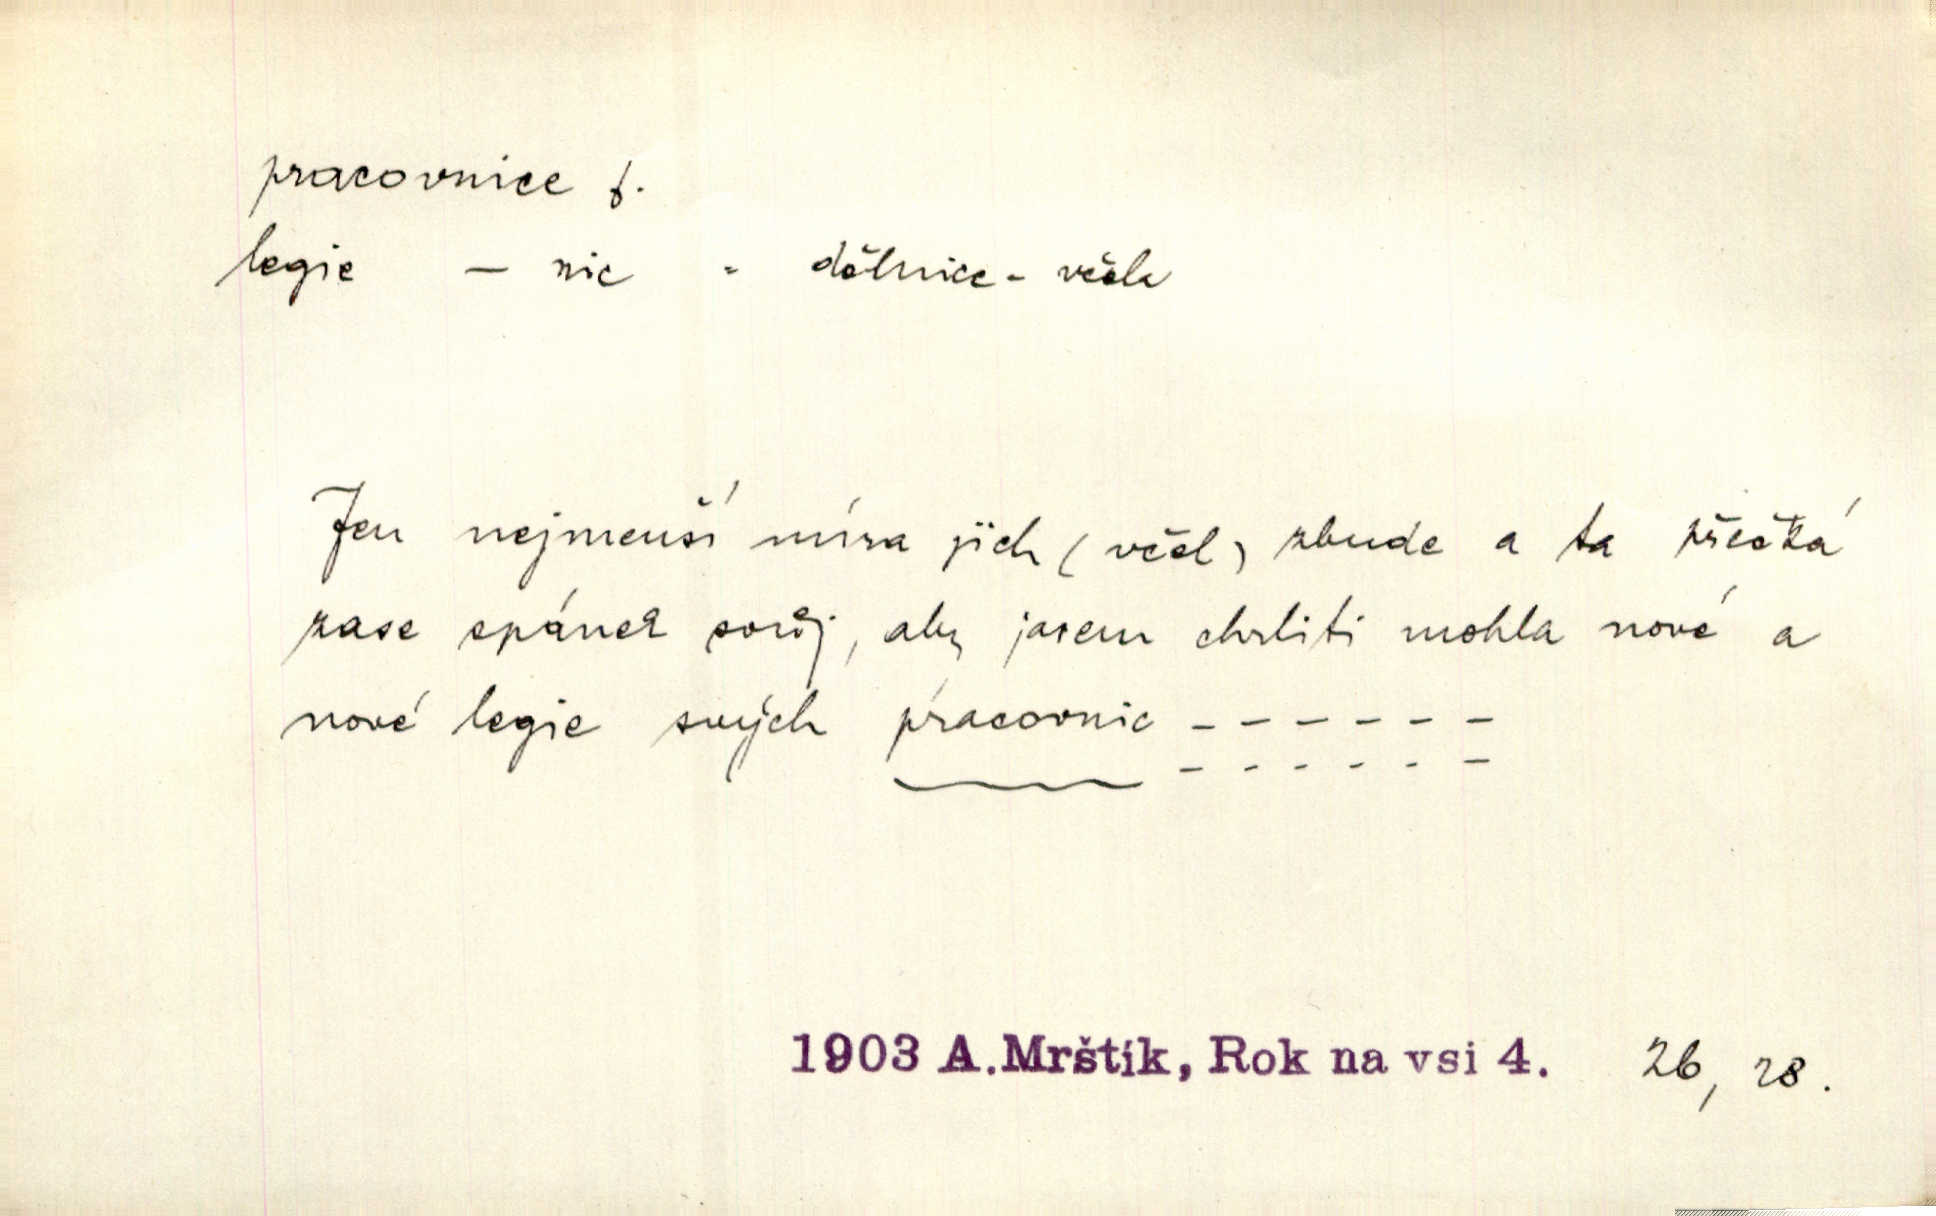 pracovnice f.
legie – nic - dělnice - včela
Jen nejmenší míra jich (včel) zbude a ta přečká
zase spánek svůj, aby jasem chrliti mohla nové a
nové legie svých pracovnic – – – – – –
– – – – – –
1903 A.Mrštík, Rok na vsi 4. 26, 28.